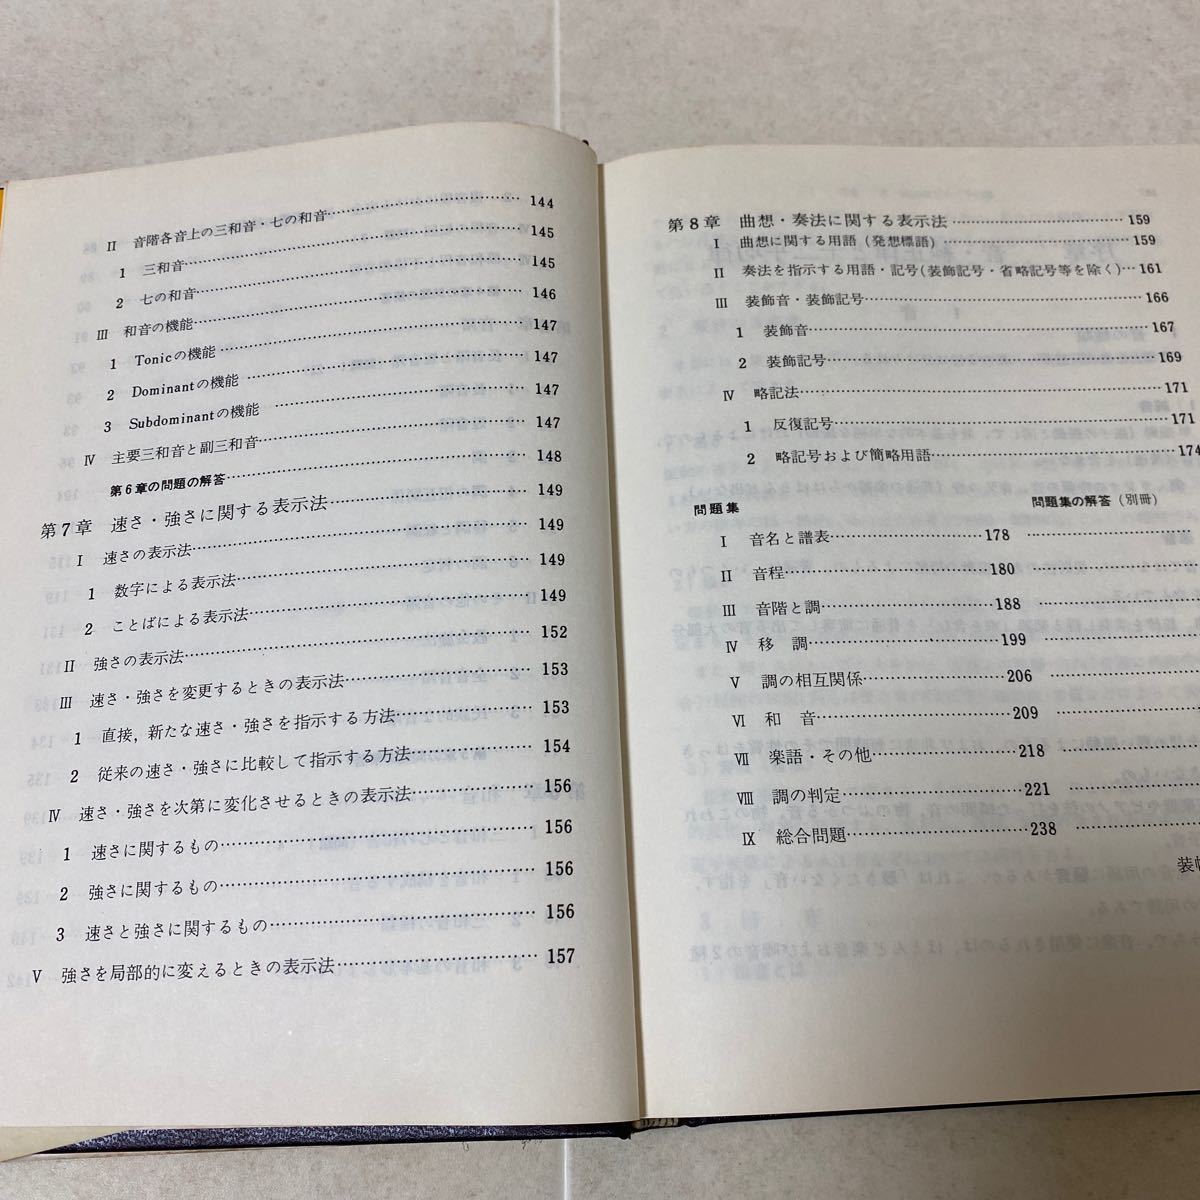 Ⅱ 音階各音上の三和音・七の和音……144
1 三和音……145
2 七の和音……145
Ⅲ 和音の機能……146
1 Tonicの機能……147
2 Dominantの機能……147
3 Subdominantの機能……147
Ⅳ 主要三和音と副三和音……147
第6章の問題の解答……148
第7章 速さ・強さに関する表示法……149
Ⅰ 速さの表示法……149
1 数字による表示法……149
2 ことばによる表示法……149
Ⅱ 強さの表示法……152
Ⅲ 速さ・強さを変更するときの表示法……153
1 直接,新たな速さ・強さを指示する方法……153
2 従来の速さ・強さに比較して指示する方法……154
Ⅳ 速さ・強さを次第に変化させるときの表示法……156
1 速さに関するもの……156
2 強さに関するもの……156
3 速さと強さに関するもの……156
Ⅴ 強さを局部的に変えるときの表示法……157
第8章 曲想・奏法に関する表示法……159
Ⅰ 曲想に関する用語(発想標語)……159
Ⅱ 奏法を指示する用語・記号(装飾記号・省略記号等を除く)…161
Ⅲ 装飾音・装飾記号……166
1 装飾音……167
2 装飾記号……169
Ⅳ 略記法……171
1 反復記号……171
2 略記号および簡略用語……174
問題集 問題集の解答(別冊)
Ⅰ 音名と譜表……178……
Ⅱ 音程……180……
Ⅲ 音階と調……188……
Ⅳ 移 調……199……
Ⅴ 調の相互関係……206……
Ⅵ 和 音……209……
Ⅶ 楽語・その他……218……
Ⅷ 調の判定……221……
Ⅸ 総合問題……238……